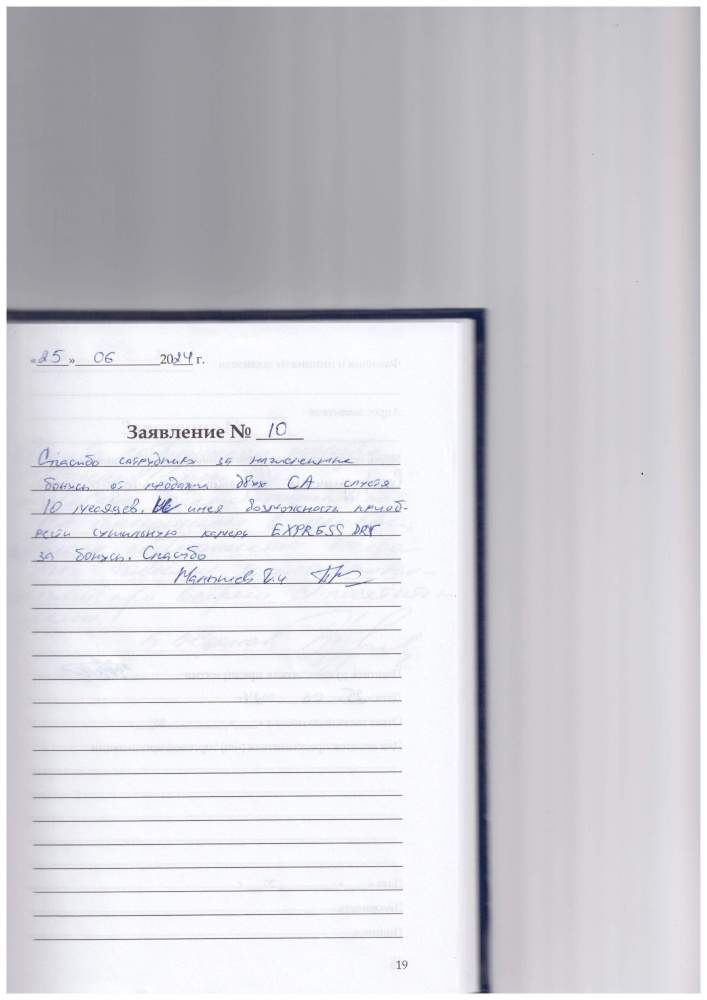 «25» 06 2024 г.
Заявление № 10
Спасибо сатруднику за начисленные
бонусы от продажи двух СА спустя
10 месяцев. имея возможность приоб-
рести сушильную камеру EXPRESS DRY
за бонусы. Спасибо
Малышев
19